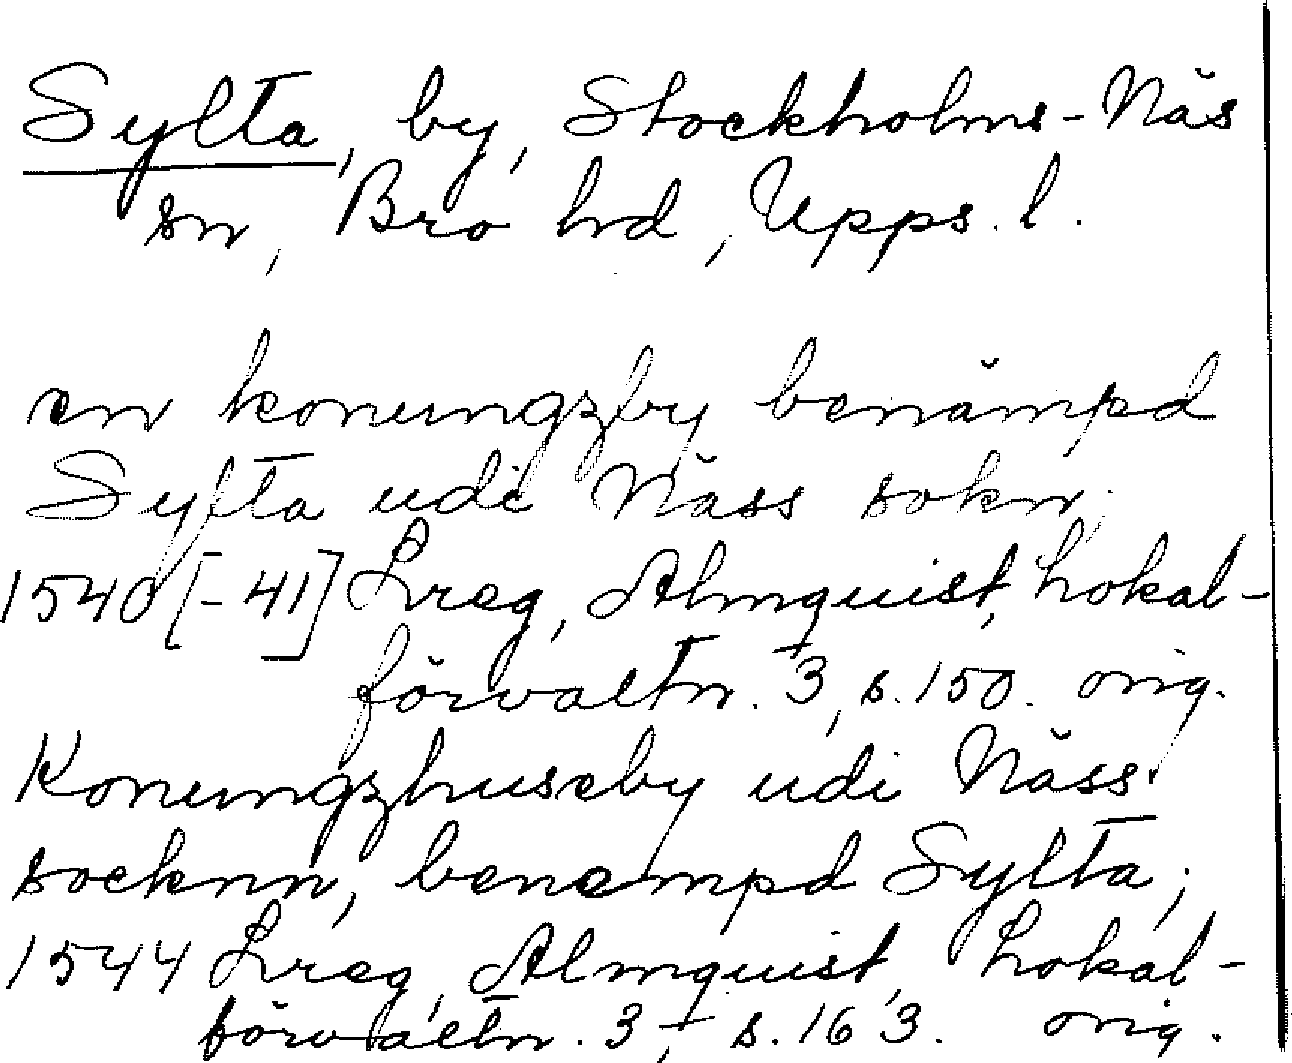 Sylta, by, Stockholms-Näs
sn, Bro hd, Upps. l.
en konungzby benämpd
Sylta udi Näss sokn;
1540[-41] Lreg, Almquist, Lokal-
förvaltn. 3, s. 150. orig.
Konungzhuseby udi Näss
socknn, benempd Sylta;
1544 Lreg, Almquist, Lokal-
förvaltn. 3, s. 163. orig.